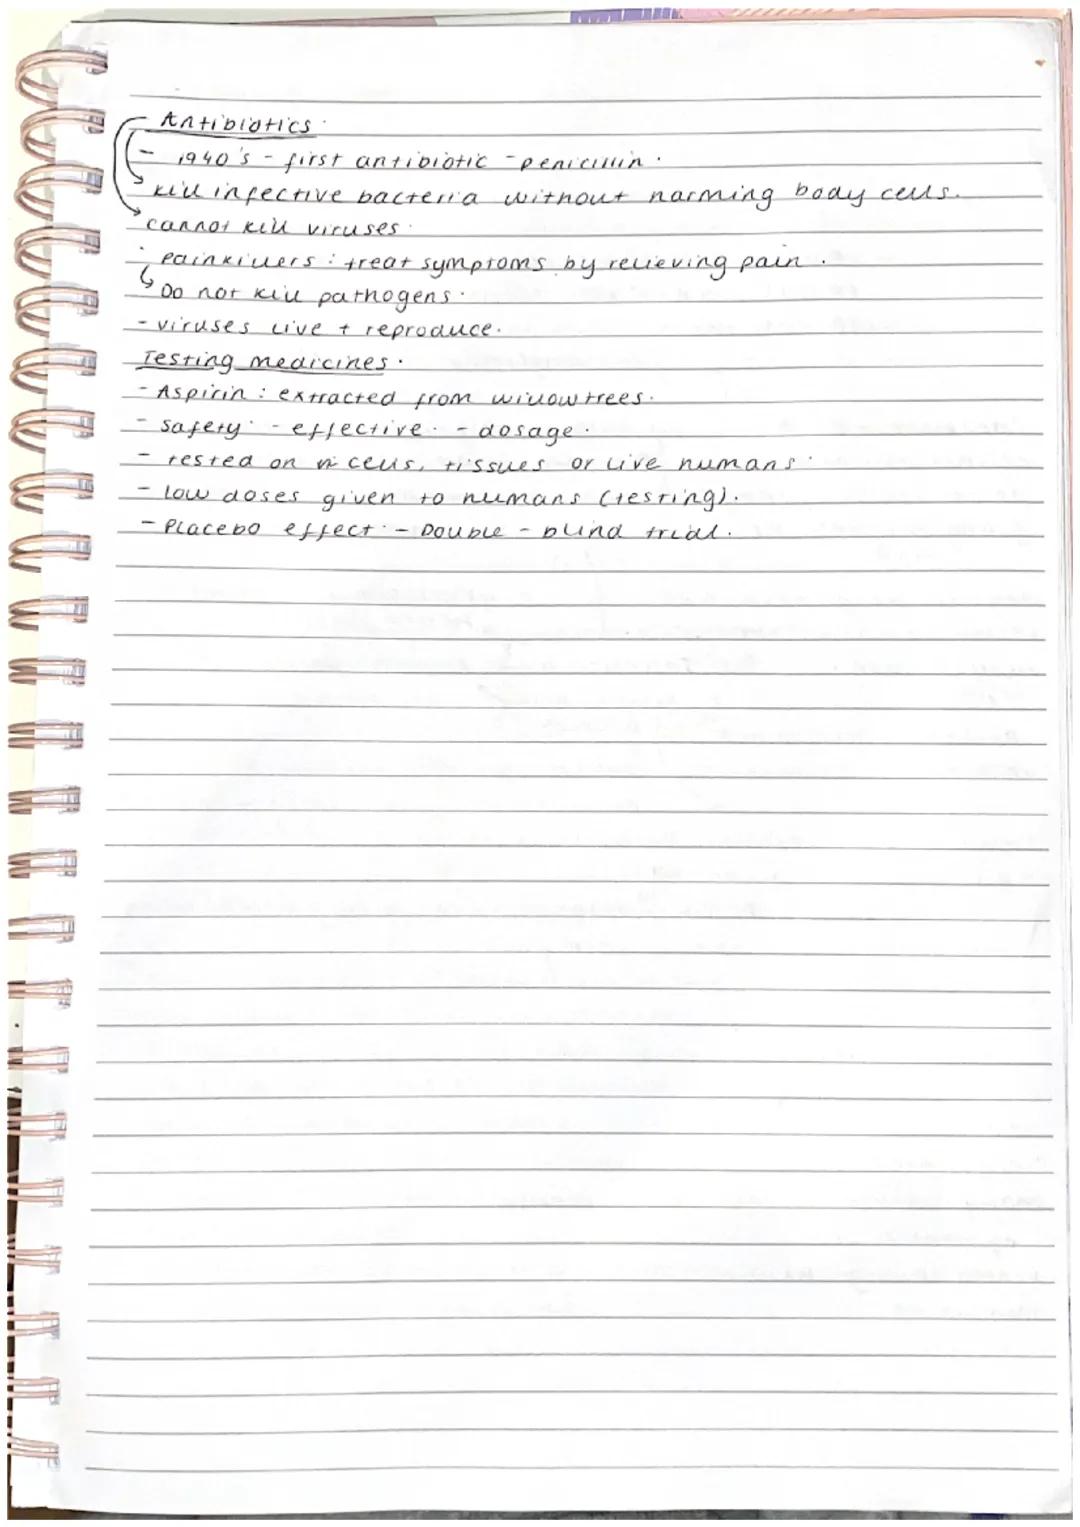 Antibiotics.
- 1940's - first antibiotic - penicillin.
kill infective bacteria without harming body cells.
cannot kill viruses.
Painkillers: treat symptoms by relieving pain.
Do not kill pathogens.
- viruses live + reproduce.
Testing medicines.
- Aspirin: extracted from willow trees.
- safety. - effective. - dosage.
- tested on cells, tissues or live humans.
- low doses given to humans (testing).
- Placebo effect. - Double - blind trial.